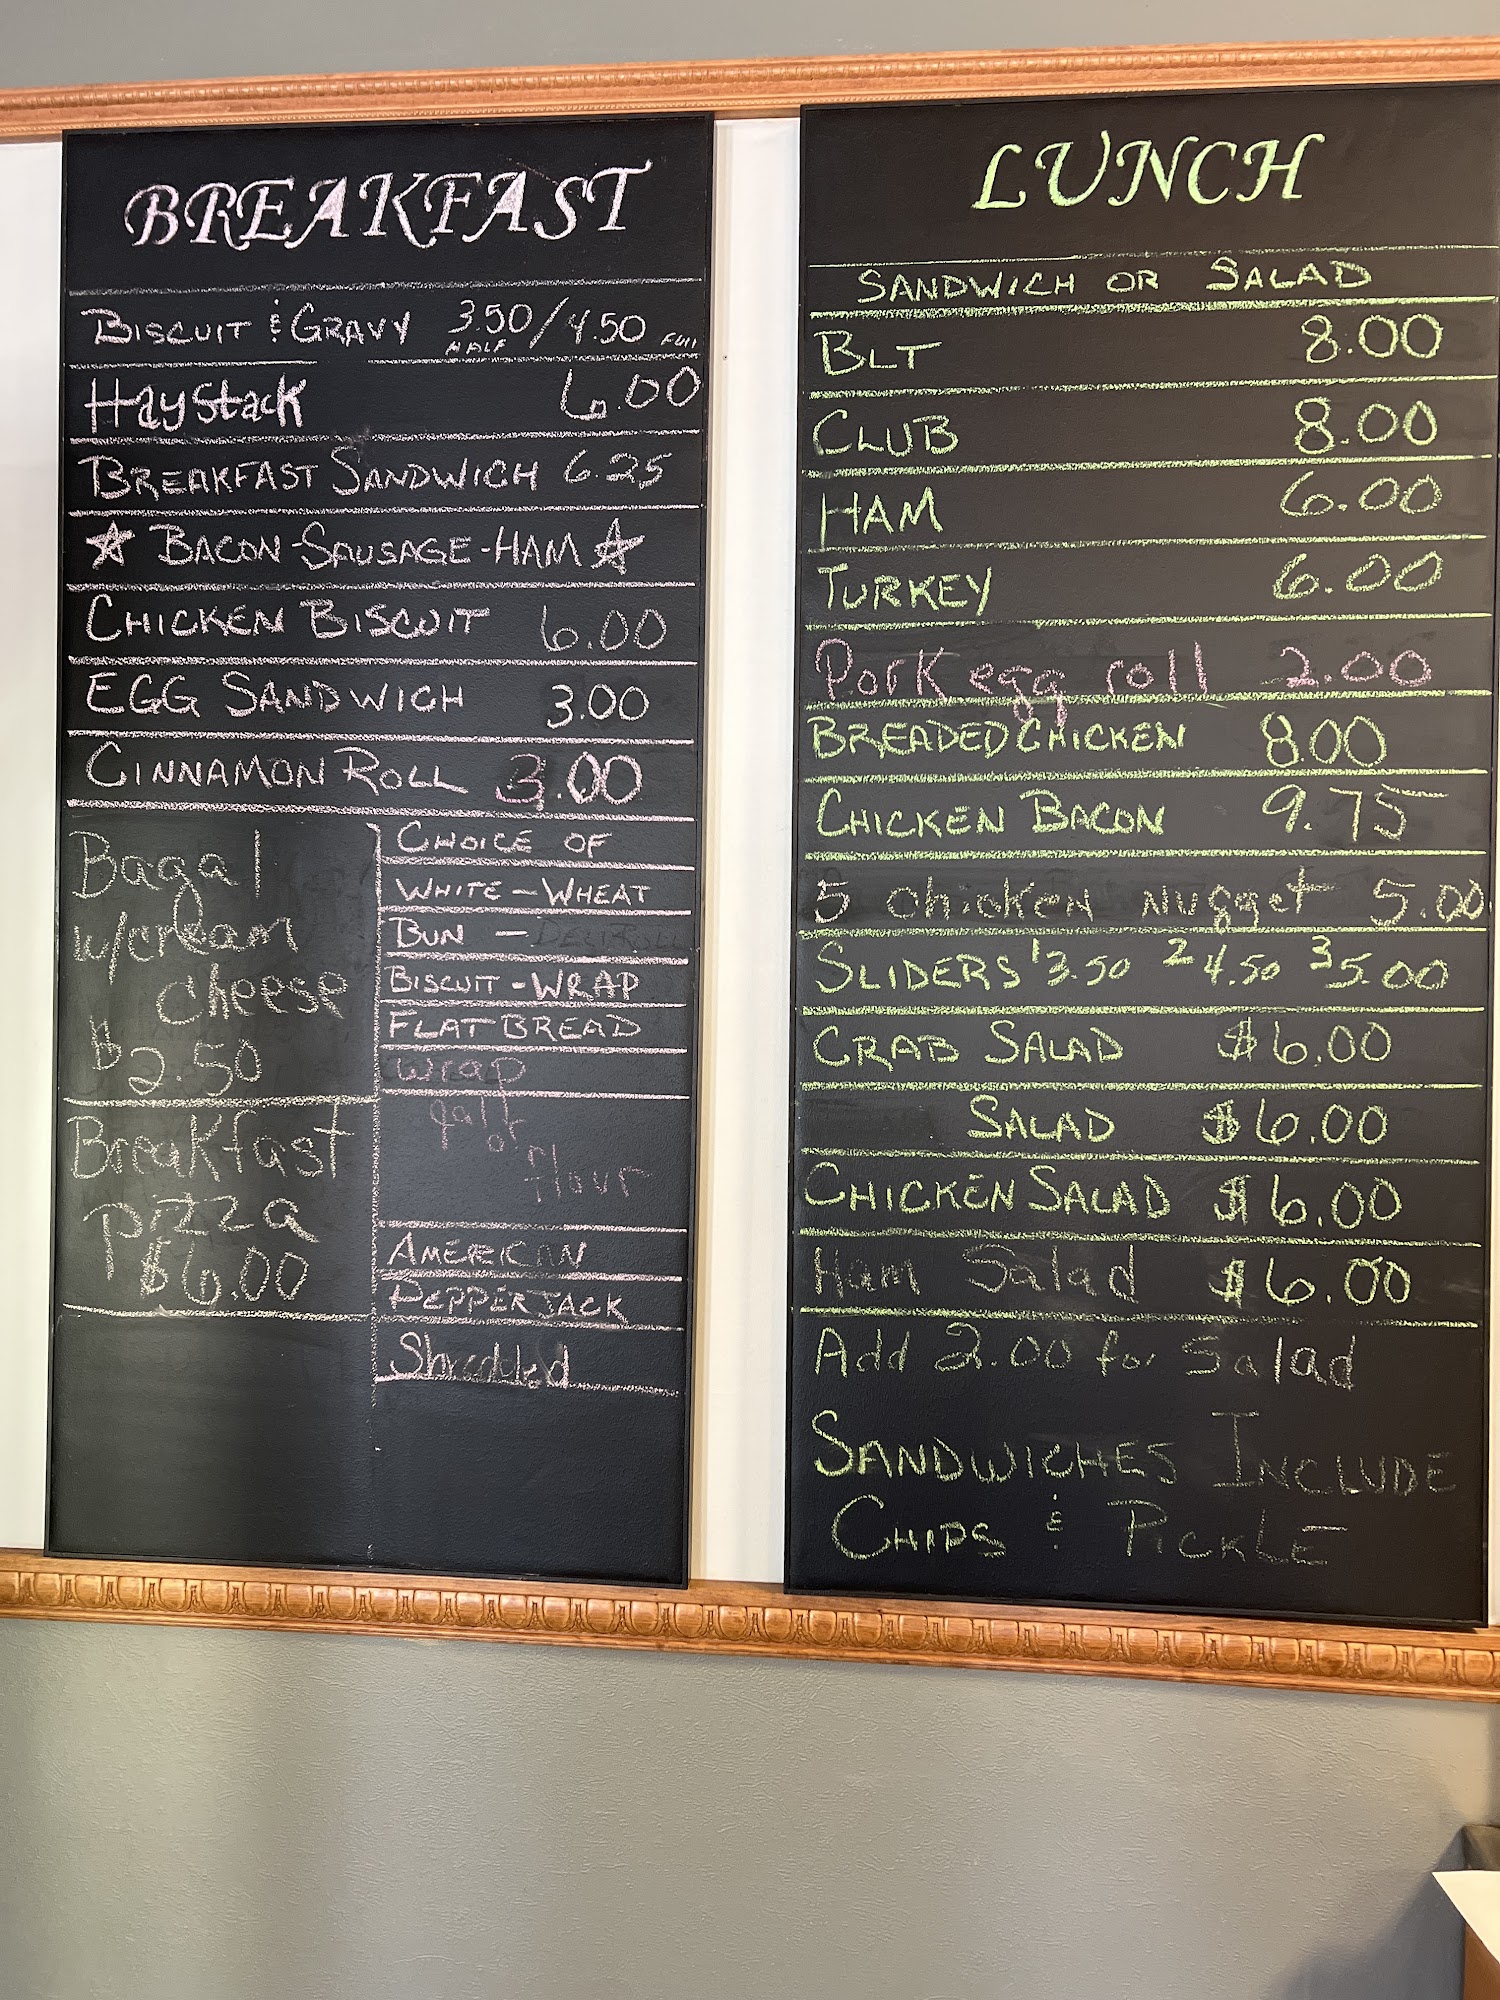 BREAKFAST
BISCUIT & GRAVY 3.50 / 4.50
HALF FULL
Haystack 6.00
BREAKFAST SANDWICH 6.25
☆ BACON-SAUSAGE-HAM ☆
CHICKEN BISCUIT 6.00
EGG SANDWICH 3.00
CINNAMON ROLL 3.00
Bagal
w/cream
cheese
$2.50
Breakfast
pizza
$6.00
CHOICE OF
WHITE - WHEAT
BUN - DELI ROLL
BISCUIT - WRAP
FLATBREAD
wrap
of
flour
AMERICAN
PEPPERJACK
Shredded
LUNCH
SANDWICH OR SALAD
BLT 8.00
CLUB 8.00
HAM 6.00
TURKEY 6.00
Pork egg roll 2.00
BREADED CHICKEN 8.00
CHICKEN BACON 9.75
5 chicken nugget 5.00
SLIDERS 1 3.50 2 4.50 3 5.00
CRAB SALAD $6.00
SALAD $6.00
CHICKEN SALAD $6.00
Ham Salad $6.00
Add 2.00 for Salad
SANDWICHES INCLUDE
CHIPS & PICKLE